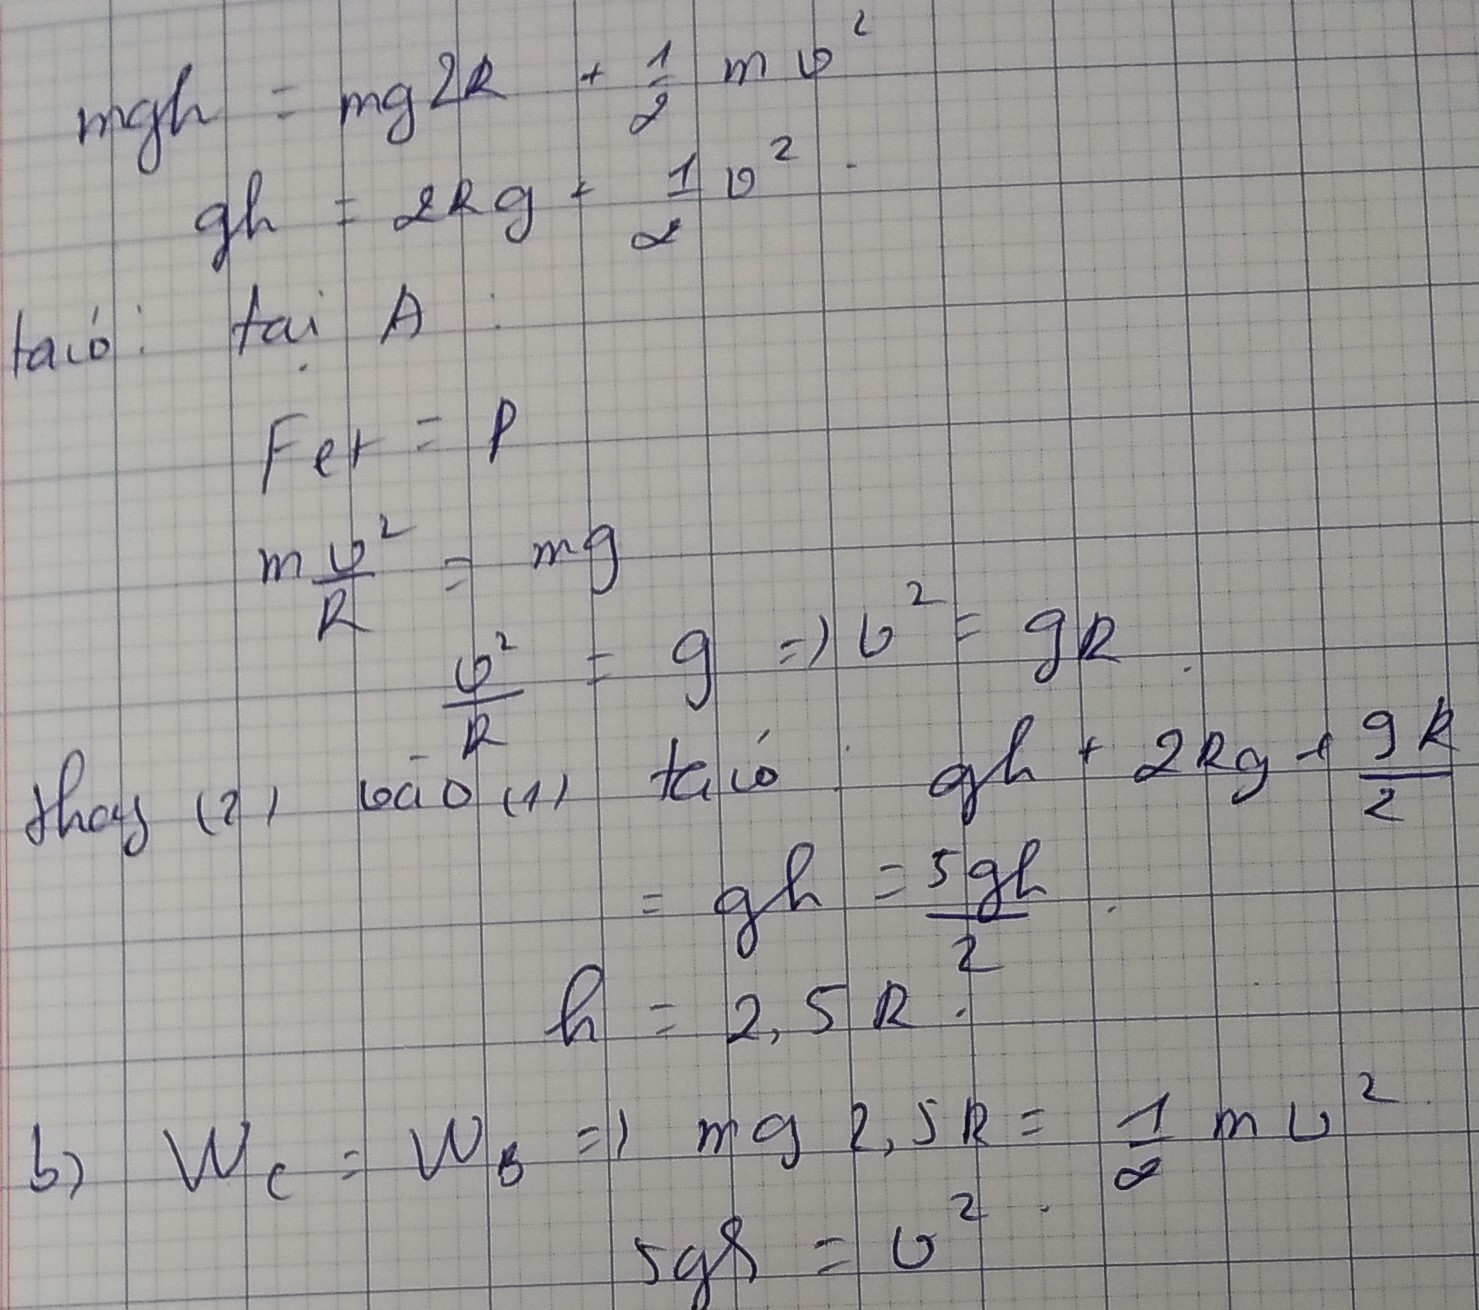 mgh = mg2R + 1/2 mv²
gh = 2Rg + 1/2 v².
ta có: tại A :
Fet = P
m v²/R = mg
v²/R = g => v² = gR.
thay (2) vào (1) ta có : gh + 2Rg + gR/2
= gh = 5gh/2 .
h = 2,5R.
b) Wc = WB => mg 2,5R = 1/2 mv².
5gh = v².